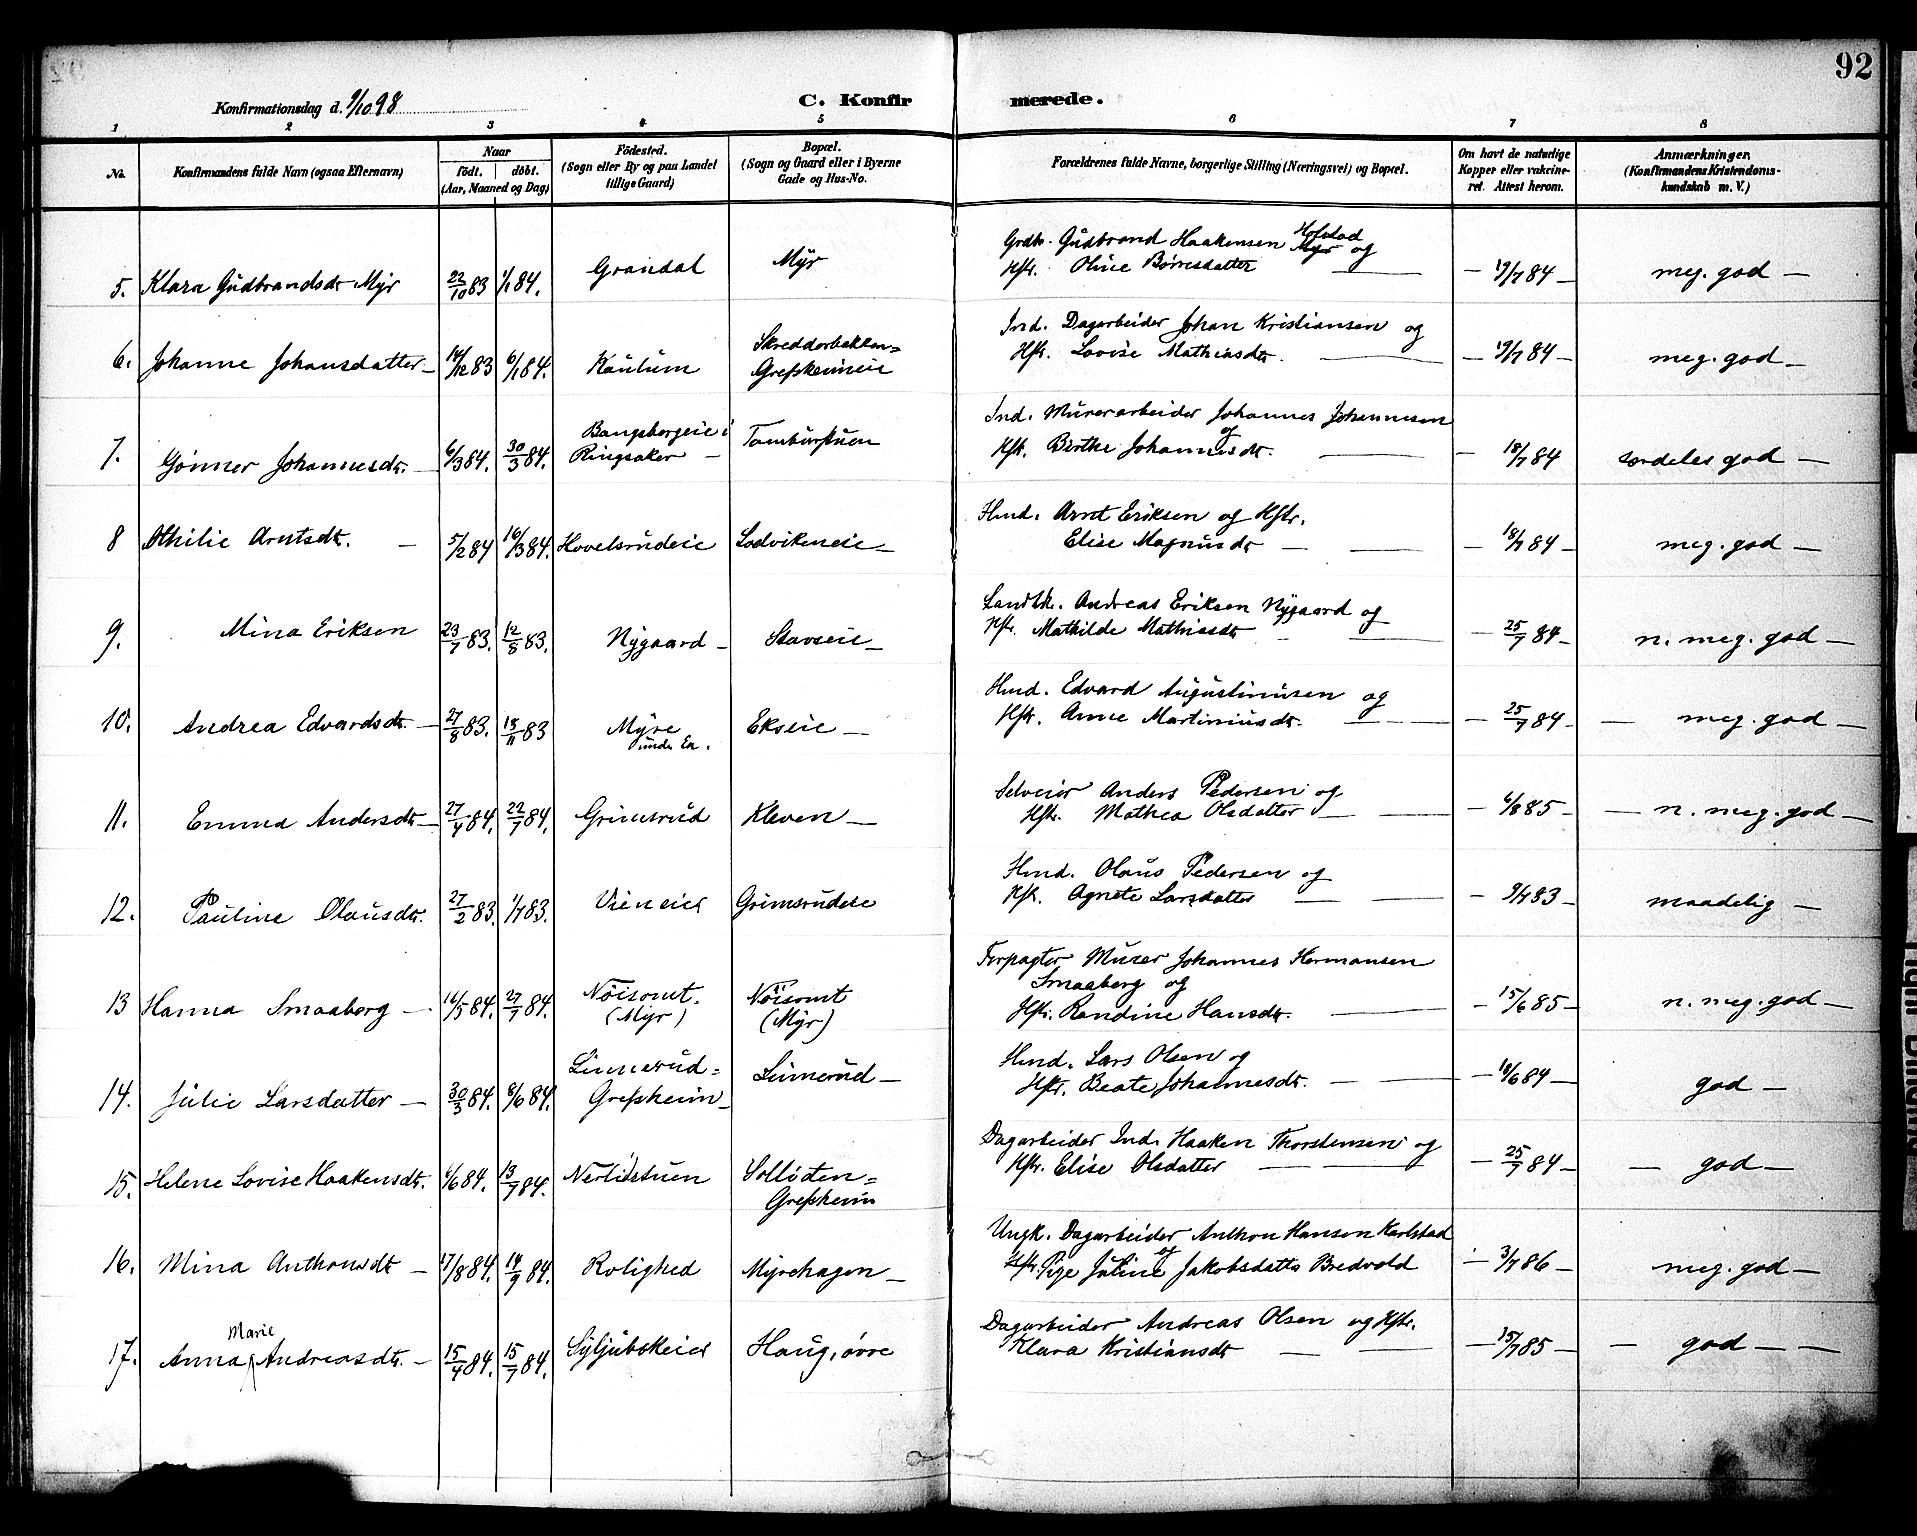 92
Konfirmationsdag d. 9/10 98
C. Konfirmerede.
1 2 3 4 5 6 7 8
No. Konfirmandens fulde Navn (ogsaa Efternavn) Naar födt. döbt. (Aar, Maaned og Dag) Födested. (Sogn eller By og paa Landet tillige Gaard) Bopæl. (Sogn og Gaard eller i Byerne Gade og Hus-No. Forældrenes fulde Navne, borgerlige Stilling (Næringsvei) og Bopæl. Om havt de naturlige Kopper eller vakcineret. Attest herom. Anmærkninger. (Konfirmandens Kristendomskundskab m. V.)
5. Klara Gudbrandsdr Myr 22/10 83 1/1 84. Grandal Myr Grdbr. Gudbrand Haakensen Myr Hofstad og
Hstr. Oline Børresdatter — 19/7 84 — meg. god —
6. Johanne Johansdatter 14/12 83 6/1 84. Kaulum Skreddorbakken= Grefsheimeie Ind. Dagarbeider Johan Kristiansen og
Hstr. Lovise Mathiasdr. — 19/7 84 — meg. god —
7. Gønner Johannesdr. 6/3 84. 30/3 84. Bangsbergeie i Ringsaker — Tamburstuen Ind. Murerarbeider Johannes Johannesen og
Hstr. Birthe Johannesdr. — 18/7 84 særdeles god —
8 Othilie Arntsdr. — 5/2 84 16/3 84. Hovelsrudeie Lodvikeneie — Hmd. Arnt Eriksen og Hstr.
Elise Magnusdr — 18/7 84 — meg. god —
9. Mina Eriksen 23/7 83. 12/8 83. Nygaard — Stavseie — Landhdl. Andreas Eriksen Nygaard og
Hstr. Mathilde Mathiasdr — 25/7 84 — n. meg. god —
10. Andrea Edvardsdr. — 27/8 83. 18/11 83 Myre under Ek. Ekseie — Hmd. Edvard Augustinusen og
Hstr. Anne Martiniusdr. — 25/7 84 — meg. god —
11. Emma Andersdr. — 27/4 84. 22/7 84. Grimsrud Kleven — Selveier Anders Pedersen og
Hstr. Mathea Olsdatter — 6/8 85 — n. meg. god —
12. Pauline Olausdr. 27/2 83. 1/7 83. Vieneies Grimsrudeie Hmd. Olaus Pedersen og
Hstr. Agnete Larsdatter — 9/7 83 — maadelig —
13 Hanna Smaaberg — 16/5 84. 27/7 84. Nöisomt. (Myr) Nöisomt (Myr) Forpagter Murer Johannes Hermansen
Smaaberg og
Hstr. Randine Hansdr. — 15/6 85 — n. meg. god —
14. Julie Larsdatter — 30/3 84. 8/6 84. Linnerud= Grefsheim — Linnerud — Hmd. Lars Olsen og
Hstr. Beate Johannesdr. — 18/6 84 — god —
15. Helene Lovise Haakensdr. 6/6 84. 13/7 84. Nerlistuen Solloten= Grefsheim Dagarbeider Ind. Haaken Thorstensen og
Hstr. Elise Olsdatter — 25/7 84 — god —
16. Mina Anthonsdr — 17/8 84. 14/9 84. Rolighed Myrehagen — Ungk. Dagarbeider Anthon Hansen Karlstad og
Pige Juline Jakobsdatter Bredvold — 3/7 86 — meg. god —
17. Anna Marie Andreasdr. — 15/4 84. 15/7 84. Syljubskeies Haug, øvre Dagarbeider Andreas Olsen og Hstr.
Klara Kristiansdr — 15/7 85 — god —